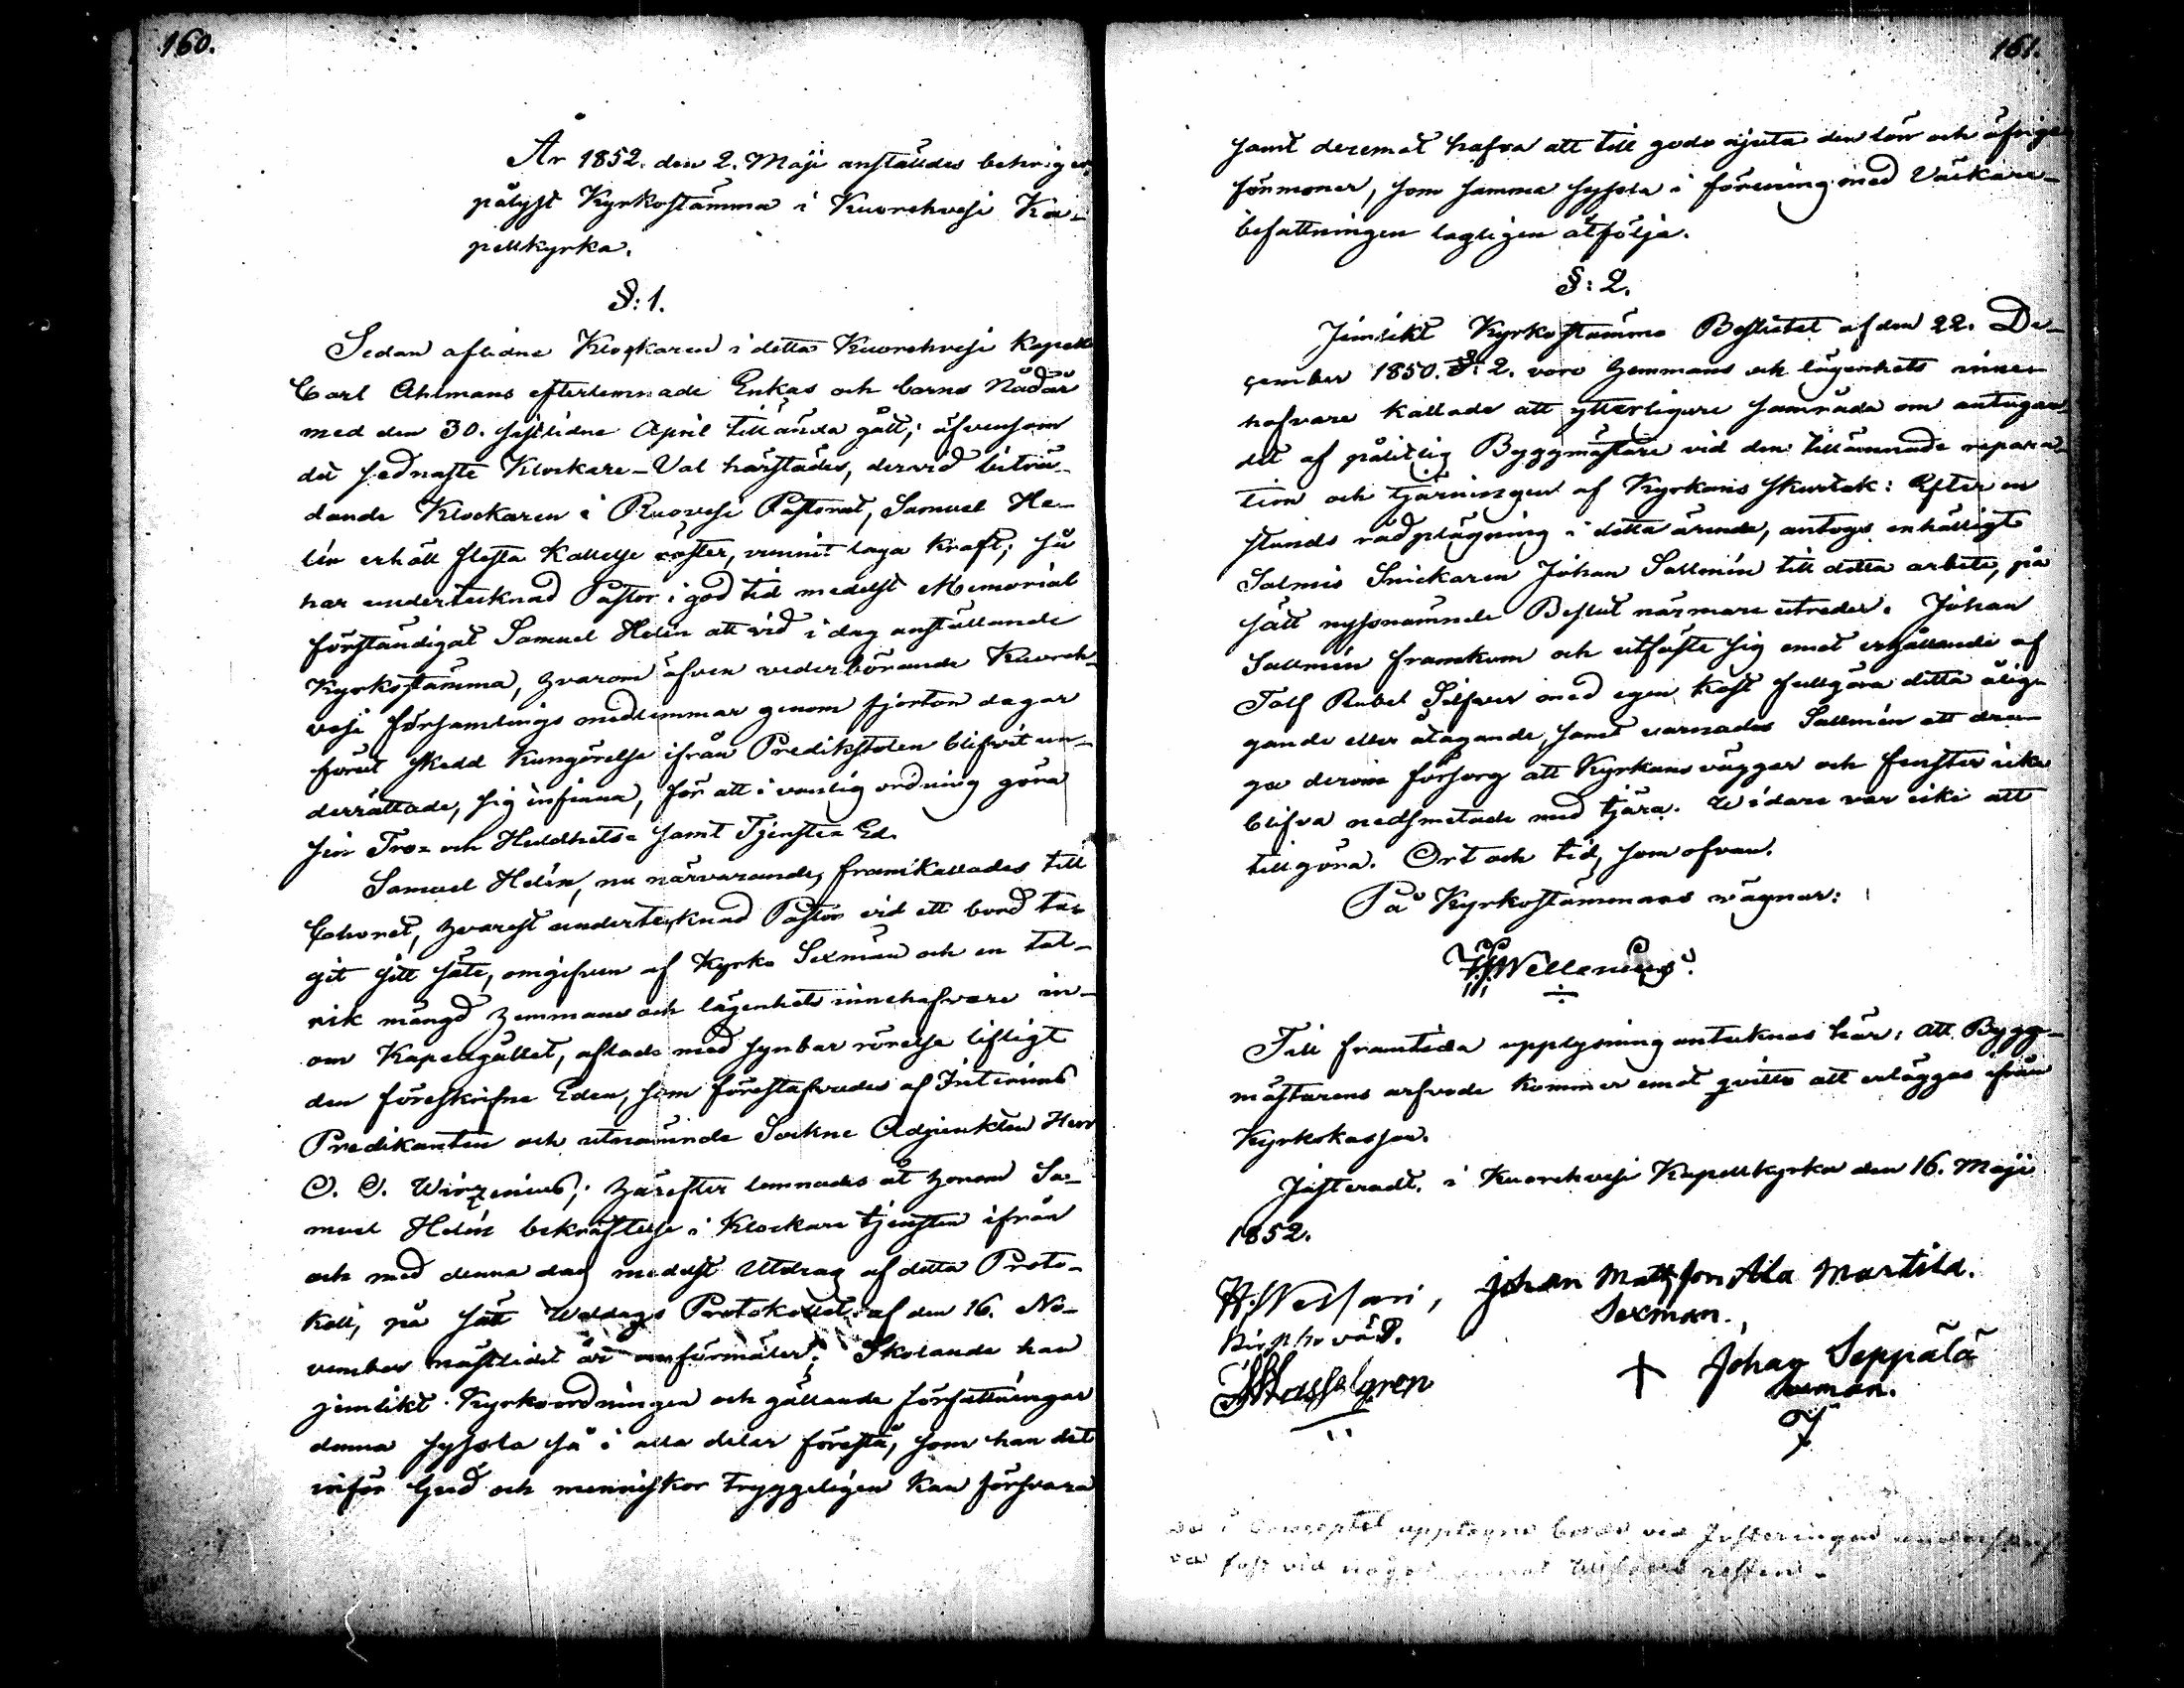 160.
År 1852. den 2. Maji anställdes behörigen
pålyst Kyrkostämma i Kuorehvesi Ka-
pellkyrka.
§: 1.
Sedan aflidne Klockaren i detta Kuorehvesi Kapell
Carl Ahlmans efterlemnade Enkas och barns Nådår
med den 30. sistlidne April tilländagått; äfvensom
det sednaste Klockare-Val härstädes, dervid biträ-
dande Klockaren i Ruovesi Pastorat, Samuel He-
lín erhöll flesta Kallelse röster, vunnit laga Kraft; så
har undertecknad Pastor i god tid medelst Memorial
förständigat Samuel Helín att vid i dag anställande
Kyrkostämma, hvarom äfven vederbörande Kuoreh-
vesi församlings medlemmar genom fjorton dagar
förut skedd Kungörelse ifrån Predikstolen blifvit un-
derrättade, sig infinna, för att i vanlig ordning göra
sin Tro- och Huldhets- samt Tjenste Ed.
Samuel Helín, nu närvarande, framkallades till
Choret, hvarest undertecknad Pastor vid ett bord ta-
git sitt säte, omgifven af Kyrko Sexmän och en tal-
rik mängd Hemmans och lägenhets innehafvare in-
om Kapellgället, aflade med synbar rörelse lifligt
den föreskrifne Eden, som förestafvades af Interims
Predikanten och utnämnde Sockne Adjunkten Herr
O. O. Wirzenius; härefter lemnades åt honom Sa-
muel Helín bekräftelse i Klockare tjensten ifrån
och med denna dag medelst Utdrag af detta Proto-
koll, på sätt Waldags Protokollet af den 16. No-
vember nästlidet år omförmäler; Skolande han
jemlikt Kyrkoordningen och gällande författningar
denna syssla så i alla delar förestå, som han det
inför Gud och menniskor tryggeligen kan försvara
161.
samt deremot hafva att till godo njuta den lön och öfriga
förmoner, som samma syssla i förening med Väckare-
befattningen lagligen åtfölja.
§: 2.
Jemlikt Kyrkostämmo Beslutet af den 22. De-
cember 1850. §: 2. voro Hemmans och lägenhets inne-
hafvare kallade att ytterligare samråda om antagan-
det af pålitlig Byggmästare vid den tillämnade repara-
tion och tjärningen af Kyrkans skurtak: Efter en
stunds rådplägning i detta ärende, antogs enhälligt
Salmis Snickaren Johan Sallmín till detta arbete, på
sätt nyssnämnde Beslut närmare utreder. Johan
Sallmín framkom och utfäste sig emot erhållande af
Tolf Rubel Silfver med egen kost fullgöra detta ålig-
gande eller åtagande, samt varnades Sallmín att dra-
ga derom försorg att Kyrkans väggar och fenster icke
blifva nedsmetade med tjära. Widare var icke att
tillgöra. Ort och tid, som ofvan.
På Kyrkostämmans vägnar:
Wellenius.
Till framtida upplysning antecknas här: att Bygg-
mästarens arfvode kommer emot qvitto att erläggas ifrån
Kyrkokassan.
Justeradt. i Kuorehvesi Kapellkyrka den 16. Maji
1852.
Johan Mattsson Ala Martila.
Sexman.
Hasselgren
Johan Seppälä
Sexman.